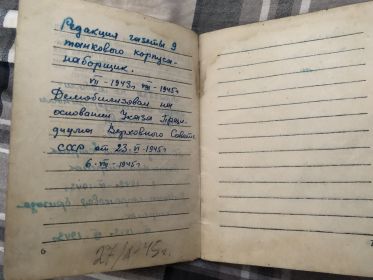 Редакция газеты 9
танкового корпуса -
наборщик.
VII - 1943г VIII - 1945г
Демобилизован на
основании Указа Прези-
диума Верховного Совета
СССР от 23. VI - 1945г
6 - VIII - 1945г.
27/X-45г.
6
7